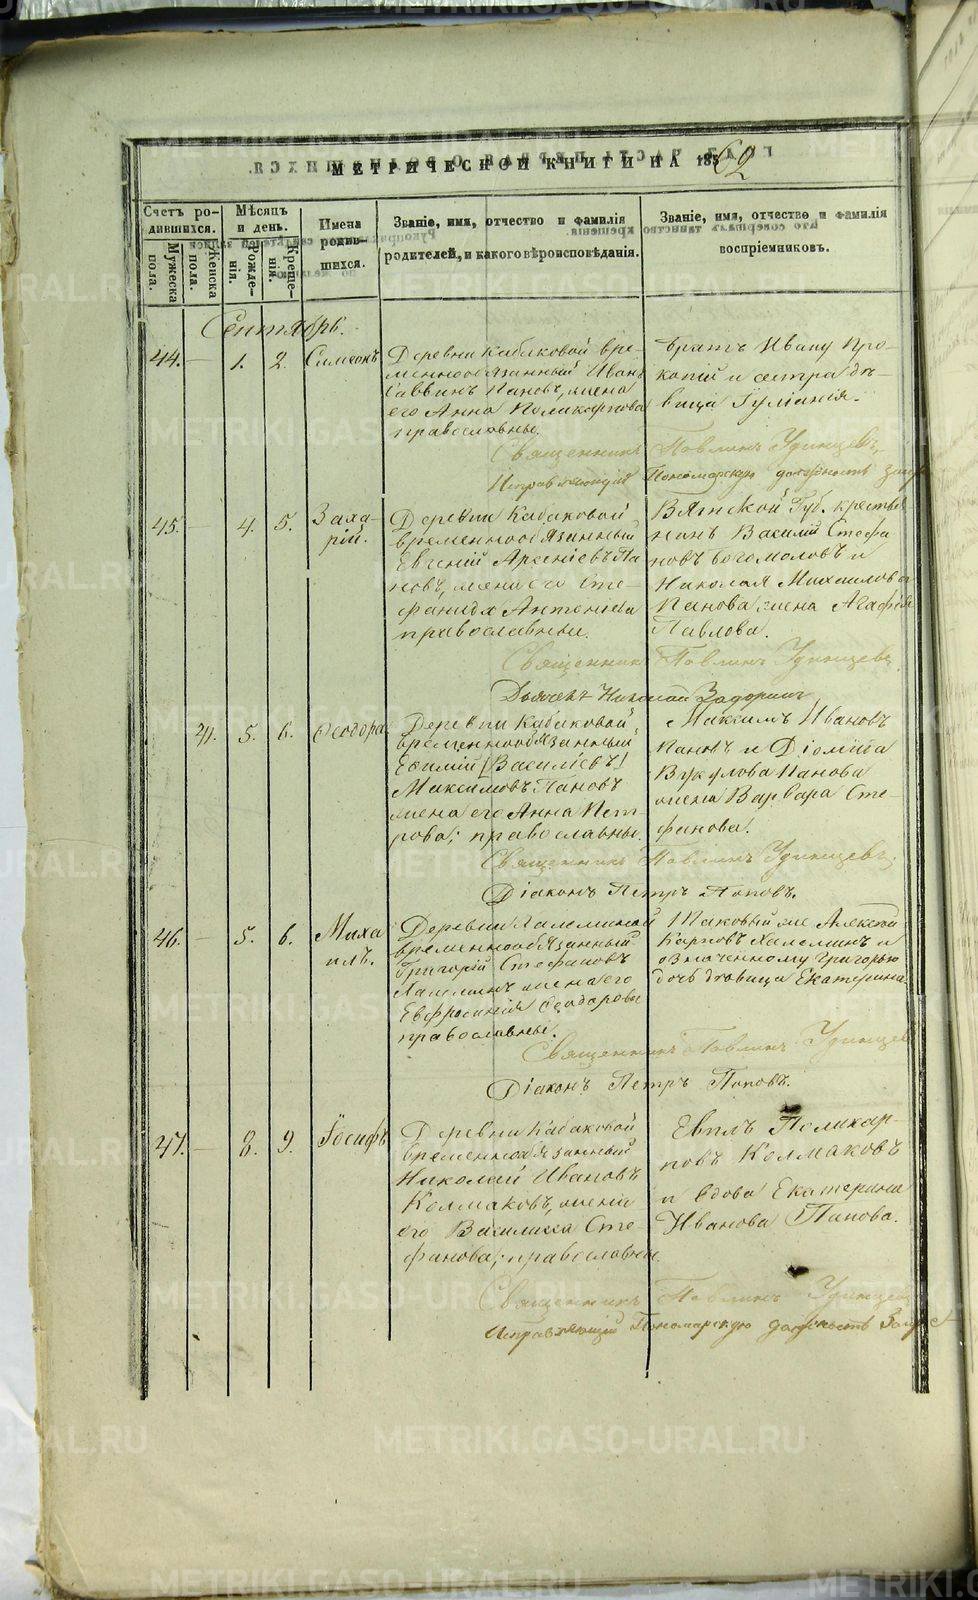 МЕТРИЧЕСКОЙ КНИГИ НА 1862
Счетъ родившихся.
Мужеска пола.
Женска пола.
Мѣсяцъ и день.
Рожденія.
Крещенія.
Имена родившихся.
Званіе, имя, отчество и фамилія родителей, и какого вѣроисповѣданія.
Званіе, имя, отчество и фамилія воспріемниковъ.
Сентябрь.
44. — 1. 2. Симеонъ
Деревни Кабаковой вре-
меннообязанный Иванъ
Саввинъ Пановъ, жена
его Анна Поликарпова
православные.
братъ Ивану Про-
копій и сестра дѣ-
вица Іуліанія.
Священникъ Павлинъ Удинцевъ,
Исправляющій Пономарскую должность
45. — 4. 5. Заха-
рій.
Деревни Кабаковой
временнообязанный
Евгеній Арсеніевъ Па
новъ, жена его Сте-
фанида Антоніева
православные.
Вятской Губ. крестья
нинъ Василій Стефа
новъ Богомоловъ и
Николая Михаилова
Панова жена Агафія
Павлова.
Священникъ Павлинъ Удинцевъ
Дьячекъ Николай Задоринъ
41. 5. 6. Ѳеодора
Деревни Кабаковой
временнообязанный
Евфимій [Василіевъ]
Максимовъ Пановъ
жена его Анна Пет-
рова; православные.
Максимъ Ивановъ
Пановъ и Діомида
Вукулова Панова
жена Варвара Сте-
фанова.
Священникъ Павлинъ Удинцевъ
Діаконъ Петръ Поповъ.
46. — 5. 6. Миха
илъ.
Деревни Халеминой
временнообязанный
Григорій Стефановъ
Халеминъ жена его
Евфросинія Ѳеодорова
православные.
Таковый же Алексѣй
Карповъ Халеминъ и
означенному Григорью
дочь дѣвица Екатерина
Священникъ Павлинъ Удинцев
Діаконъ Петръ Поповъ.
47. — 8. 9. Іосифъ
Деревни Кабаковой
временнообязанный
Николай Ивановъ
Колмаковъ, жена
его Василисса Сте
фанова; православные.
Евплъ Поликар-
повъ Колмаковъ
и вдова Екатерина
Иванова Панова.
Священникъ Павлинъ Удинцев
Исправляющій Пономарскую должность
METRIKI.GASO-URAL.RU